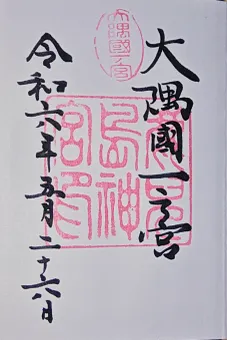 大隅國一宮
大隅國一之宮
鹿児
島神
宮印
令和六年五月二十六日